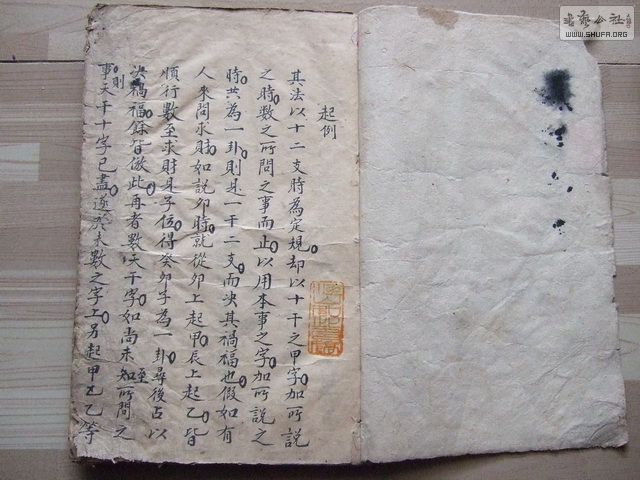 起例
其法以十二支時為定規却以十干之甲字加所說
之時數之所問之事而止以用本事之字加所說之
時共為一卦則是一干二支而决其禍福也假如有
人來問求財如說卯時就從卯上起甲辰上起乙皆
順行數至求財是子位得癸卯子為一卦尋後占以
决禍福餘皆倣此再者數天干字如尚未至知所問之
事則天干十字已盡遂於未數之字上另起甲乙等
書藝公社
WWW.SHUFA.ORG